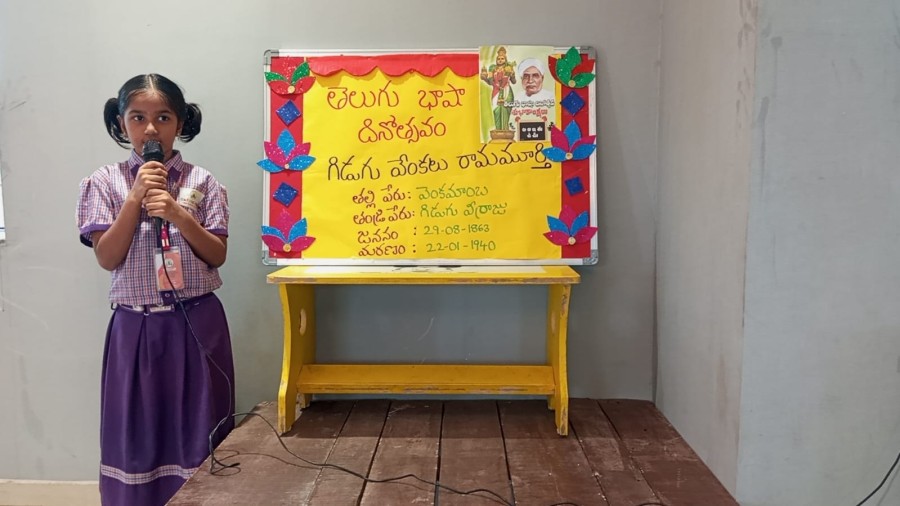 తెలుగు భాషా
దినోత్సవం
గిడుగు వేంకట రామమూర్తి
తల్లి పేరు: వెంకమాంబ
తండ్రి పేరు: గిడుగు వీర్రాజు
జననం : 29-08-1863
మరణం : 22-01-1940
తెలుగు భాషా దినోత్సవ
శుభాకాంక్షలు